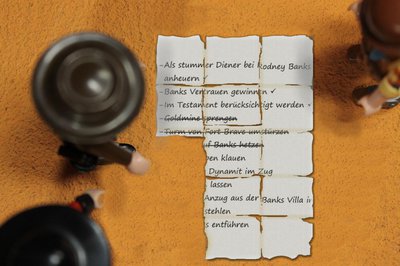 -Als stummer Diener bei Rodney Banks
anheuern ✓
- Banks Vertrauen gewinnen ✓
- Im Testament berücksichtigt werden
- Goldmine sprengen
- Turm von Fort Brave umstürzen
auf Banks hetzen
klauen
Dynamit im Zug
lassen
Anzug aus der Banks Villa
stehlen
entführen